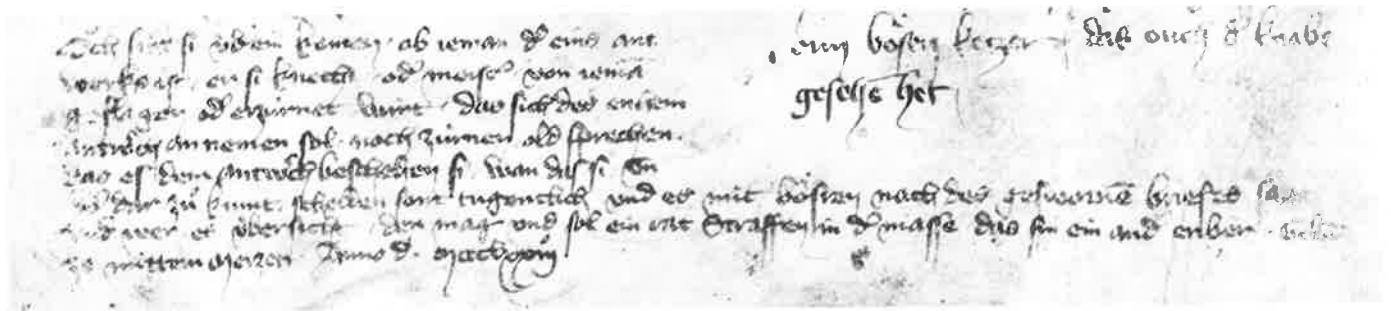 Och sint si vberein kemen · ob ieman d' eins ant
werks ist · er si knecht · od' meist' · von iemā
geslagen od' erzürnet wurt · das sich des enkein
antwerch an nemen sol · noch zürnen old sprechen ·
das es dem antwerch beschehen si · wan das si
dar zů kumt · scheiden sont tugentlich vnd es nit bösren nach des geswornē briefes sag
vnd wer es v̈bersicht · den mag vnd sol ein rat straffen in d' masse das sin ein and' enber ·
ze mitten merzen Anno d.
bösen ketzer das ouch d' knabe
gesehē het